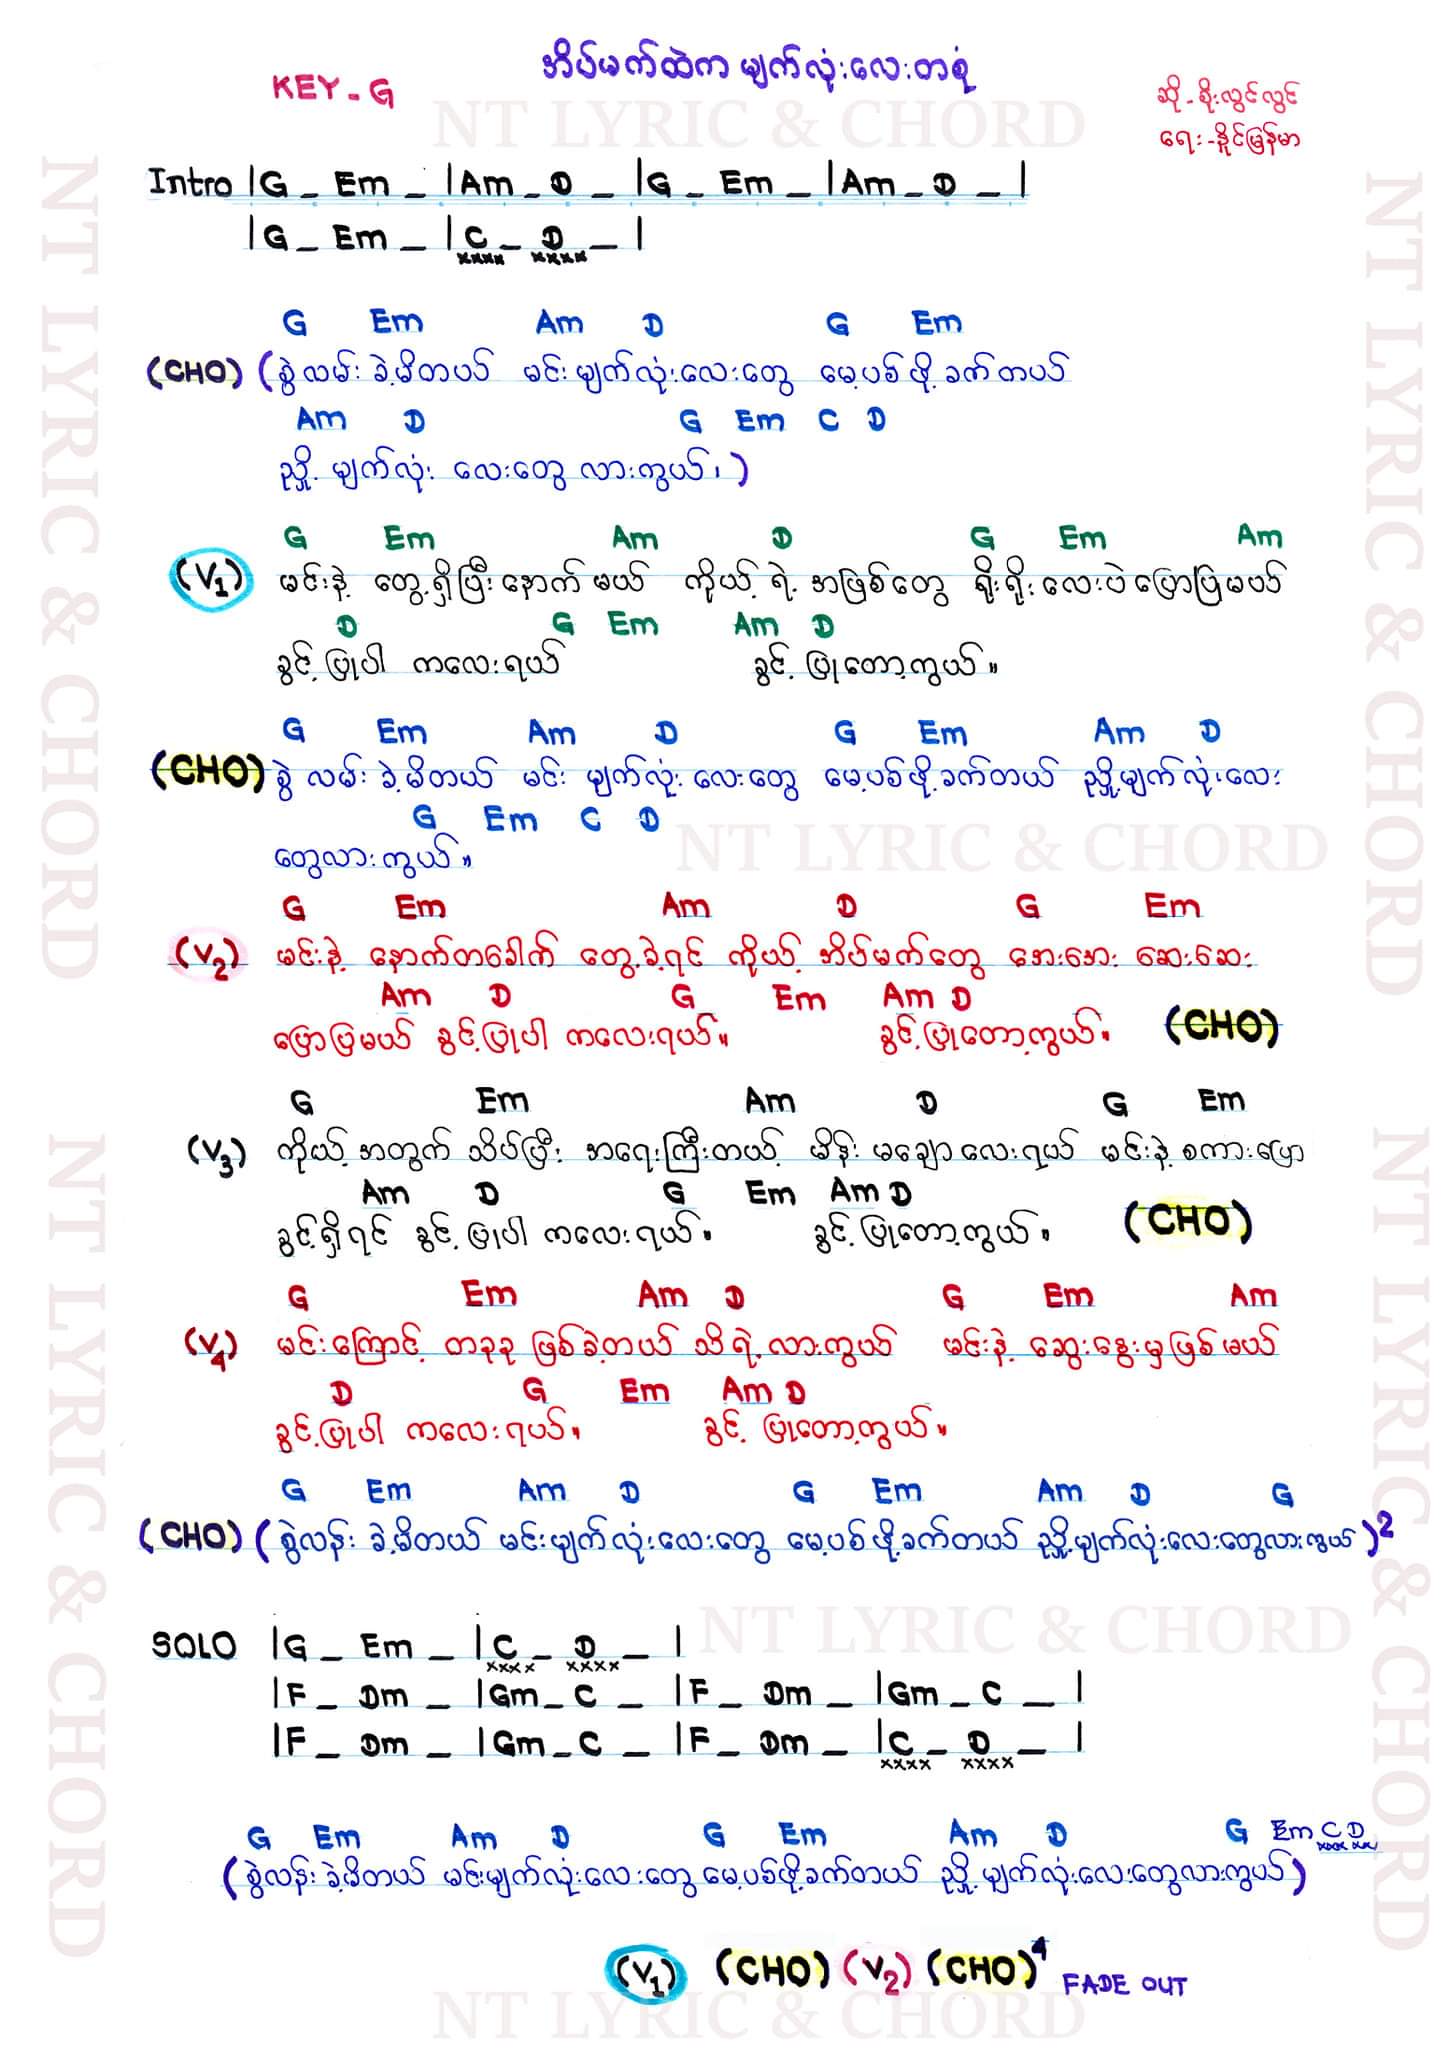 အိပ်မက်ထဲက မျက်လုံးလေးတစုံ
KEY - G
ဆို - စိုးလွင်လွင်
ရေး - နိုင်မြန်မာ
NT LYRIC & CHORD
Intro |G _ Em _ |Am _ D _ |G _ Em _ |Am _ D _ |
|G _ Em _ |C _ D _ |
xxxx xxxx
G Em Am D G Em
(CHO) (စွဲလမ်း ခဲ့မိတယ် မင်းမျက်လုံးလေးတွေ မေ့ပစ်ဖို့ ခက်တယ်
Am D G Em C D
ညှို့ မျက်လုံး လေးတွေ လားကွယ်၊)
G Em Am D G Em Am
(V1) မင်းနဲ့ တွေ့ရှိပြီးနောက်မယ် ကိုယ့်ရဲ့ အဖြစ်တွေ ရိုးရိုးလေးပဲပြောပြမယ်
D G Em Am D
ခွင့်ပြုပါ ကလေးရယ် ခွင့်ပြုတော့ကွယ်။
G Em Am D G Em Am D
(CHO) စွဲလမ်း ခဲ့မိတယ် မင်း မျက်လုံး လေးတွေ မေ့ပစ်ဖို့ခက်တယ် ညှို့မျက်လုံးလေး
G Em C D
တွေလားကွယ်။
NT LYRIC & CHORD
G Em Am D G Em
(V2) မင်းနဲ့ နောက်တခေါက် တွေ့ခဲ့ရင် ကိုယ့် အိပ်မက်တွေ အေးအေး ဆေးဆေး
Am D G Em Am D
ပြောပြမယ် ခွင့်ပြုပါ ကလေးရယ်။ ခွင့်ပြုတော့ကွယ်။ (CHO)
G Em Am D G Em
(V3) ကိုယ့်အတွက် သိပ်ပြီး အရေးကြီးတယ့် မိန်းမချောလေးရယ် မင်းနဲ့ စကားပြော
Am D G Em Am D
ခွင့်ရှိရင် ခွင့်ပြုပါ ကလေးရယ်။ ခွင့်ပြုတော့ကွယ်။ (CHO)
G Em Am D G Em Am
(V4) မင်းကြောင့် တခုခု ဖြစ်ခဲ့တယ် သိရဲ့လားကွယ် မင်းနဲ့ ဆွေးနွေးမှဖြစ်မယ်
D G Em Am D
ခွင့်ပြုပါ ကလေးရယ်။ ခွင့်ပြုတော့ကွယ်။
G Em Am D G Em Am D G
(CHO) (စွဲလန်း ခဲ့မိတယ် မင်းမျက်လုံးလေးတွေ မေ့ပစ်ဖို့ခက်တယ် ညှို့မျက်လုံးလေးတွေလားကွယ်)2
NT LYRIC & CHORD
SOLO |G _ Em _ |C _ D _ |
xxxx xxxx
|F _ Dm _ |Gm _ C _ |F _ Dm _ |Gm _ C _ |
|F _ Dm _ |Gm _ C _ |F _ Dm _ |C _ D _ |
xxxx xxxx
G Em Am D G Em Am D G Em C D
xxxx xx
(စွဲလန်း ခဲ့မိတယ် မင်းမျက်လုံးလေးတွေ မေ့ပစ်ဖို့ခက်တယ် ညှို့မျက်လုံးလေးတွေလားကွယ်)
(V1) (CHO) (V2) (CHO)4 FADE OUT
NT LYRIC & CHORD
NT LYRIC & CHORD
NT LYRIC & CHORD
NT LYRIC & CHORD
NT LYRIC & CHORD